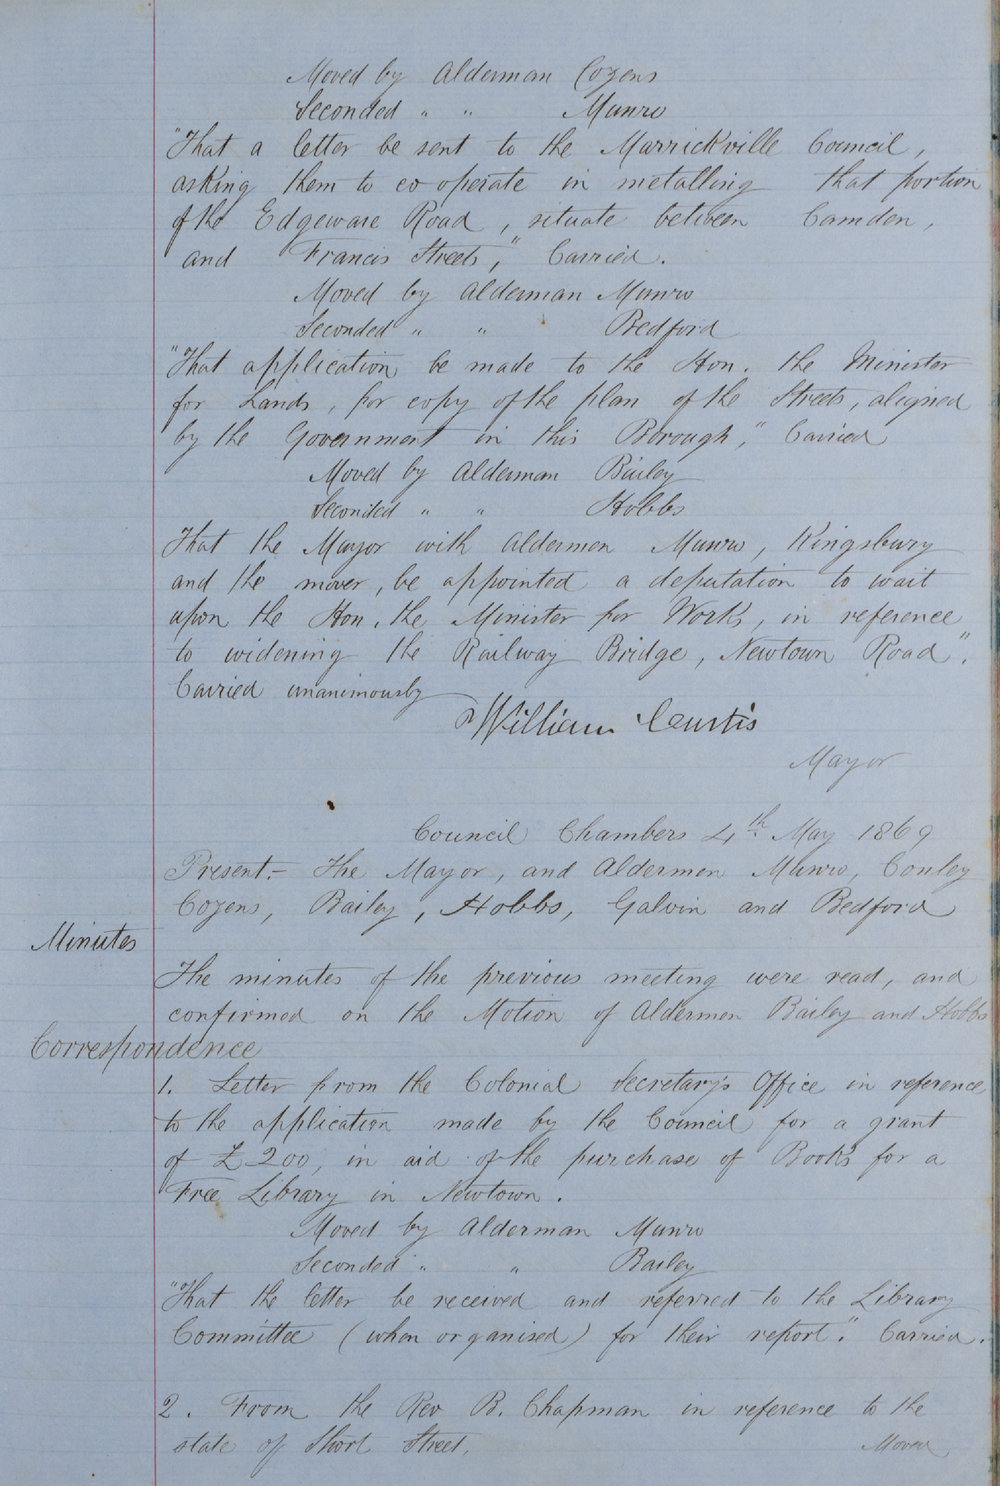 Moved by Alderman Cozens
Seconded " " Munro
"That a letter be sent to the Marrickville Council,
asking them to co operate in metalling that portion
of the Edgeware Road, situate between Camden,
and Francis Streets," Carried.
Moved by Alderman Munro
Seconded " " Bedford
"That application be made to the Hon. the Minister
for Lands, for copy of the plan of the Streets, aligned
by the Government in this Borough," Carried
Moved by Alderman Bailey
Seconded " " Hobbs
That the Mayor with Aldermen Munro, Kingsbury
and the mover, be appointed a deputation to wait
upon the Hon. the Minister for Works, in reference
to widening the Railway Bridge, Newtown Road".
Carried unanimously
William Curtis
Mayor
Council Chambers 4th May 1869
Present:- The Mayor, and Aldermen Munro, Conley
Cozens, Bailey, Hobbs, Galvin and Bedford
Minutes
The minutes of the previous meeting were read, and
confirmed on the Motion of Aldermen Bailey and Hobbs
Correspondence
1. Letter from the Colonial Secretary's Office in reference
to the application made by the Council for a grant
of £200, in aid of the purchase of Books for a
Free Library in Newtown.
Moved by Alderman Munro
Seconded " " Bailey
"That the letter be received and referred to the Library
Committee (when organised) for their report". Carried.
2. From the Rev B. Chapman in reference to the
state of Short Street.
Moved